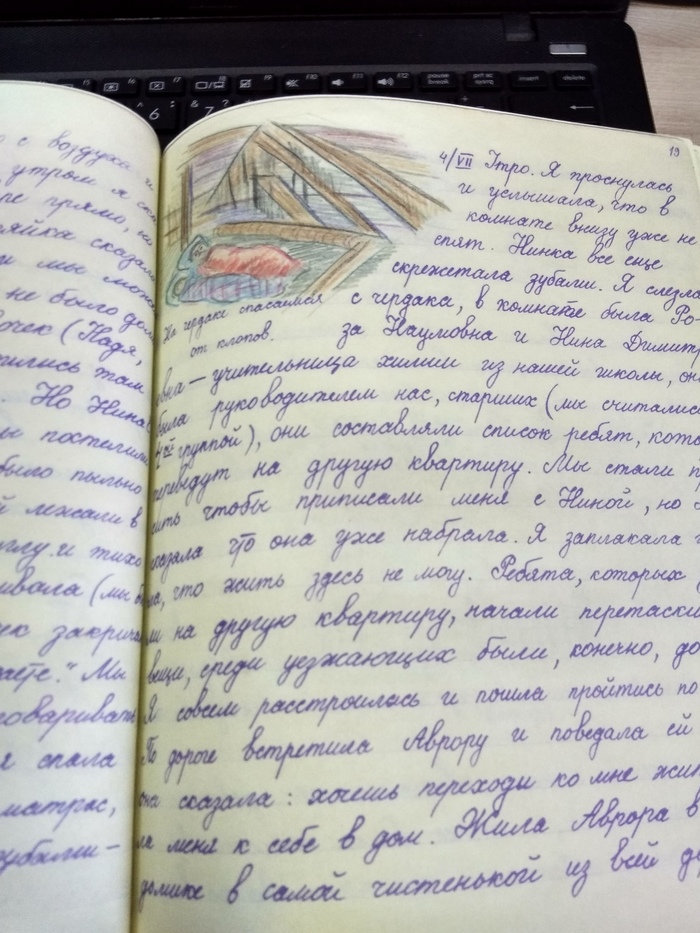 с воздуха и
утром я
прямо, но
хозяйка сказала
и мы
не было
(Надя,
там
. Но Нина
постелили
было пыльно
лежали в
углу и тихо
(мы
закричал
." Мы
я спала
матрас,
зубами –
19
4/VII Утро. Я проснулась
и услышала, что в
комнате внизу уже не
спят. Нинка все еще
скрежетала зубами. Я слезла
с чердака, в комнате была Ро-
На чердаке спасаемся
от клопов.
за Наумовна и Нина Димитр
вна – учительница химии из нашей школы, он
была руководителем нас, старших (мы считались
группой), они составляли список ребят, кото
переведут на другую квартиру. Мы стали п
сить чтобы приписали меня с Ниной, но
сказала что она уже набрала. Я заплакала
ла, что жить здесь не могу. Ребята, которых
ли на другую квартиру, начали перетаски
вещи, среди уезжающих были, конечно, до
Я совсем расстроилась и пошла пройтись по
По дороге встретила Аврору и поведала ей
она сказала: хочешь переходи ко мне жит
ла меня к себе в дом. Жила Аврора в
домике в самой чистенькой из всей д
pause break
prt sc sysrq
insert
delete
F5
F6
F7
F8
F9
F10
F11
F12
6
7